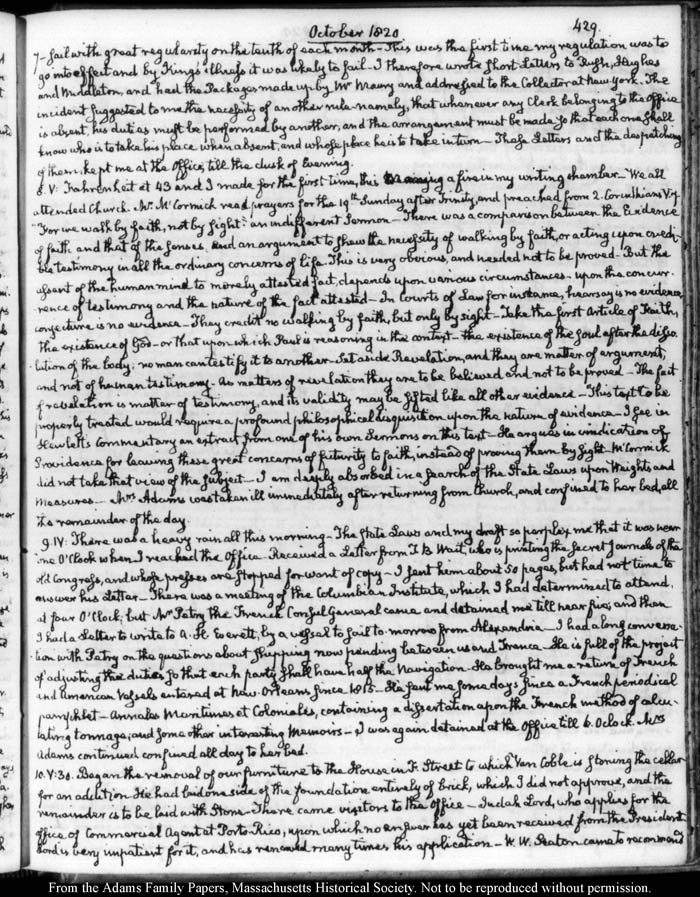 October 1820
429.
7- sail with great regularity on the tenth of each month - This was the first time my regulation was to
go into effect and by King's illness it was likely to fail - I therefore wrote short Letters to Rush, Hughes
and Middleton, and had the Packages made up by Mr Maury and addressed to the Collector at New York. The
incident suggested to me the necessity of another rule namely, that whenever any Clerk belonging to the Office
is absent, his duties must be performed by another, and the arrangement must be made so that each one shall
know who is to take his place when absent, and whose place he is to take in turn - These Letters and the despatching
of them, kept me at the Office, till the dusk of Evening.
8. V: Fahrenheit at 43 and I made for the first time, this a fire in my writing chamber - We all
attended Church. Mr McCormick read prayers for the 19th Sunday after Trinity, and preached from 2. Corinthians V.7.
"For we walk by faith, not by sight": an indifferent Sermon - There was a comparison between the Evidence
of faith and that of the senses, and an argument to shew the necessity of walking by faith, or acting upon credi-
ble testimony in all the ordinary concerns of life. This is very obvious, and needed not to be proved. But the
assent of the human mind to merely attested fact, depends upon various circumstances - upon the concur-
rence of testimony and the nature of the fact attested - In Courts of Law for instance, hearsay is no evidence,
conjecture is no evidence - They credit no walking by faith, but only by sight - Take the first Article of Faith,
the existence of God - or that upon which Paul is reasoning in the context - the existence of the soul after the disso-
lution of the body: no man can testify it to another - Set aside Revelation, and they are matter of argument,
and not of human testimony - As matters of revelation they are to be believed and not to be proved - The fact
of revelation is matter of testimony, and its validity may be sifted like all other evidence - This text to be
properly treated would require a profound philosophical disquisition upon the nature of evidence - I see in
Hewlett's Commentary an extract from one of his own Sermons on this text - He argues in vindication of
Providence for leaving these great concerns of futurity to faith, instead of proving them by sight - McCormick
did not take that view of the subject - I am deeply absorbed in a search of the State Laws upon Weights and
Measures - Mrs Adams was taken ill immediately after returning from Church, and confined to her bed, all
the remainder of the day.
9. IV: There was a heavy rain all this morning - The State Laws and my draft so perplex me that it was near
one O'Clock when I reached the Office - Received a Letter from T. B. Wait, who is printing the Secret Journals of the
old Congress, and whose presses are stopped for want of copy - I sent him about 50 pages, but had not time to
answer his Letter - There was a meeting of the Columbian Institute, which I had determined to attend,
at four O'Clock; but Mr Petry the French Consul General came and detained me till near five, and then
I had a Letter to write to A. H. Everett, by a vessel to sail to-morrow from Alexandria - I had a long conversa-
tion with Petry on the questions about shipping now pending between us and France - He is full of the project
of adjusting the duties so that each party shall have half the Navigation - He brought me a return of French
and American Vessels entered at New-Orleans since 1815 - He sent me some days since a French periodical
pamphlet - Annales Maritimes et Coloniales, containing a dissertation upon the French method of calcu-
lating tonnage; and some other interesting Memoirs - I was again detained at the Office till 6. O'clock. Mrs
Adams continued confined all day to her bed.
10. V:30. Began the removal of our furniture to the House in F. Street to which Van Coble is stoning the cellar
for an addition. He had laid one side of the foundation entirely of brick, which I did not approve, and the
remainder is to be laid with Stone - There came visitors to the Office - Judah Lord, who applies for the
office of Commercial Agent at Porto-Rico, upon which no answer has yet been received from the President
Lord is very impatient for it, and has renewed many times his application - W. W. Seaton came to recommend
From the Adams Family Papers, Massachusetts Historical Society. Not to be reproduced without permission.